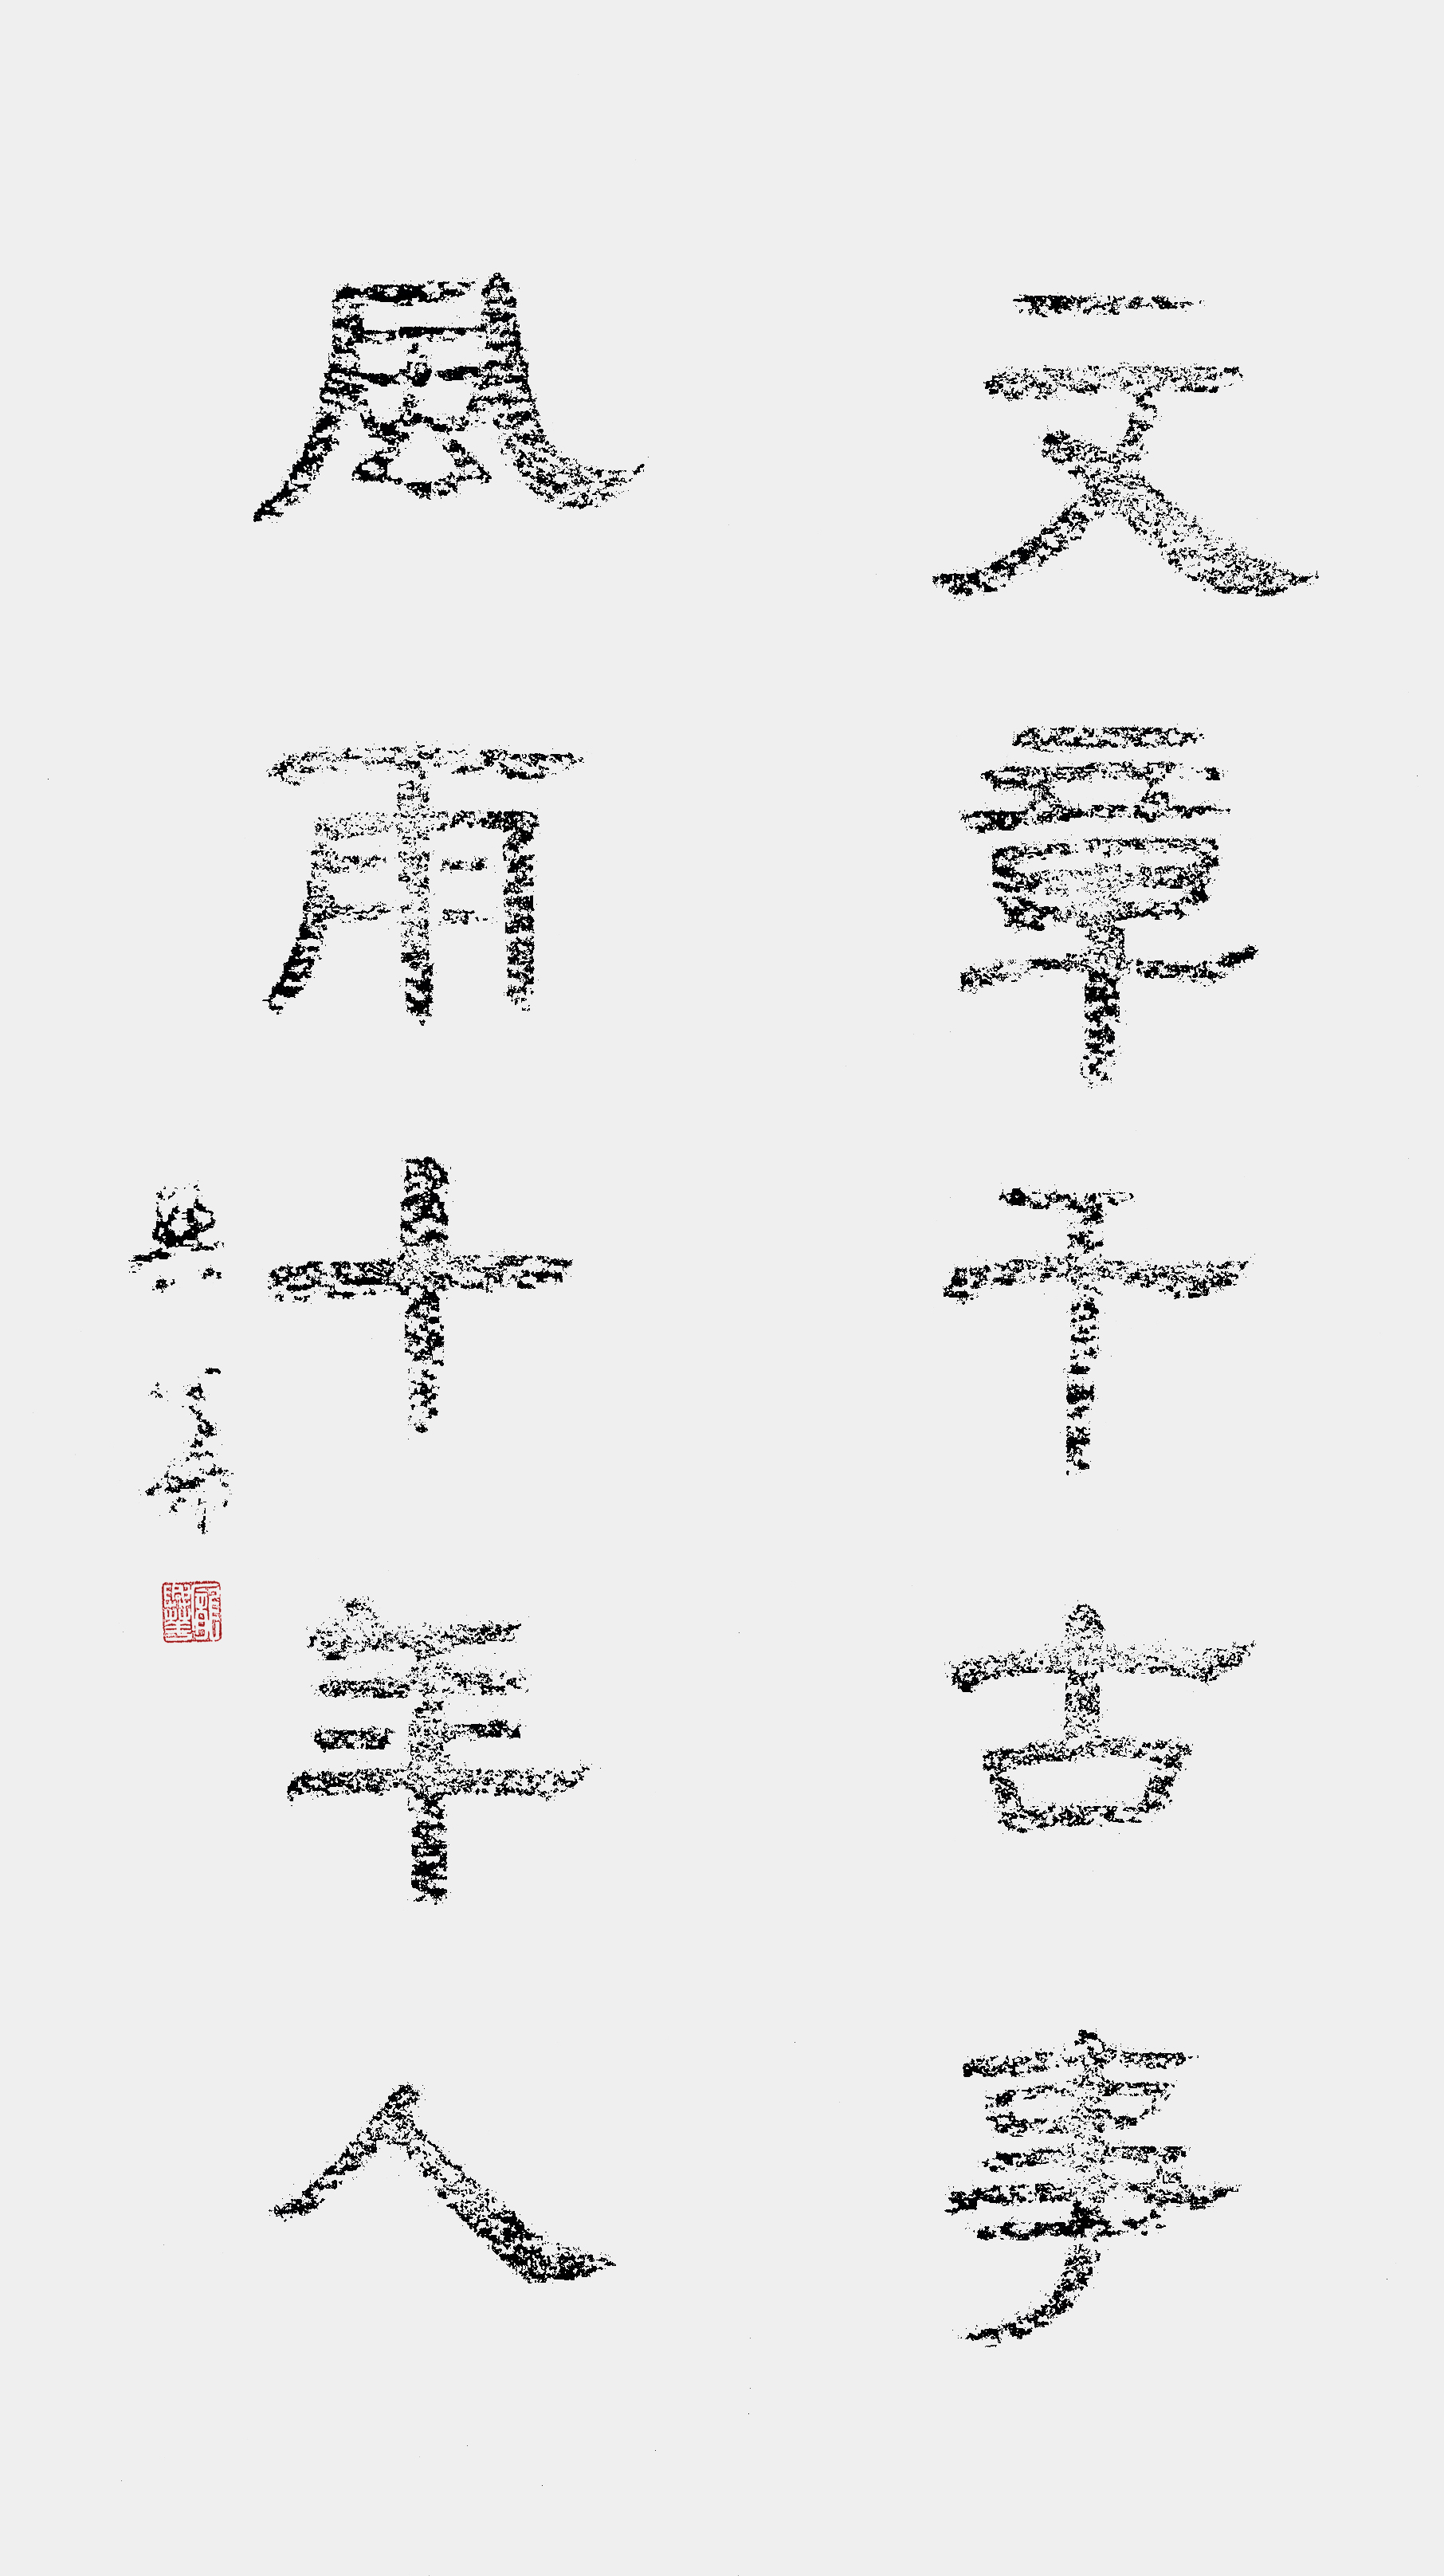 文章千古事
風雨十年人
興華